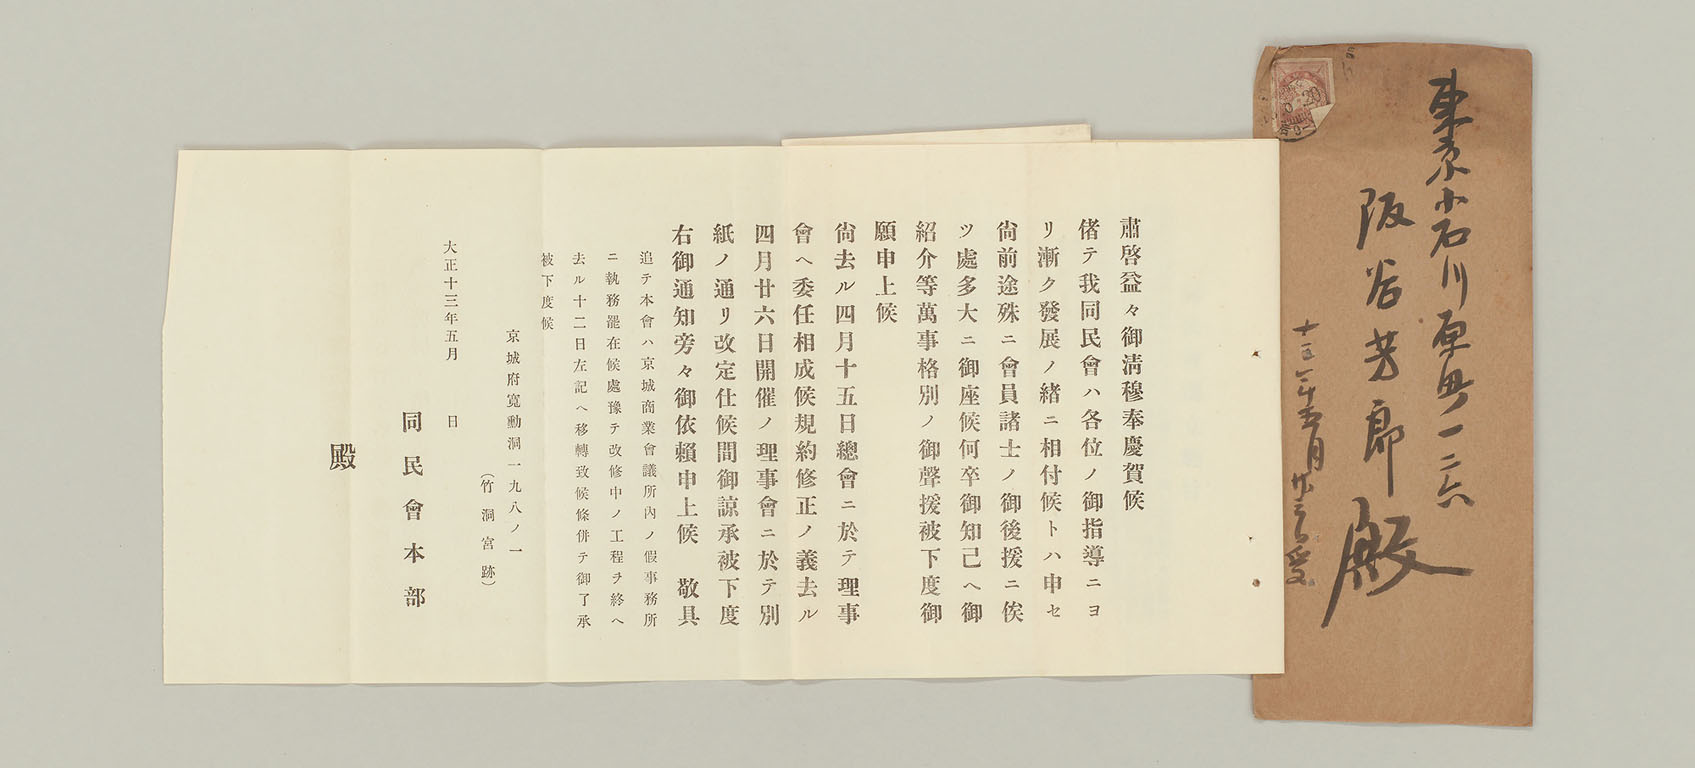 東京小石川原町一二六
阪谷芳郎殿
十三年五月廿三日受
肅啓益々御淸穆奉慶賀候
偖テ我同民會ハ各位ノ御指導ニヨ
リ漸ク發展ノ緖ニ相付候トハ申セ
尙前途殊ニ會員諸士ノ御後援ニ俟
ツ處多大ニ御座候何卒御知己ヘ御
紹介等萬事格別ノ御聲援被下度御
願申上候
尙去ル四月十五日總會ニ於テ理事
會ヘ委任相成候規約修正ノ義去ル
四月廿六日開催ノ理事會ニ於テ別
紙ノ通リ改定仕候間御諒承被下度
右御通知旁々御依賴申上候 敬具
追テ本會ハ京城商業會議所內ノ假事務所
ニ執務罷在候處豫テ改修中ノ工程ヲ終ヘ
去ル十二日左記ヘ移轉致候條併テ御了承
被下度候
京城府寬勳洞一九八ノ一
(竹洞宮跡)
大正十三年五月 日
同民會本部
殿